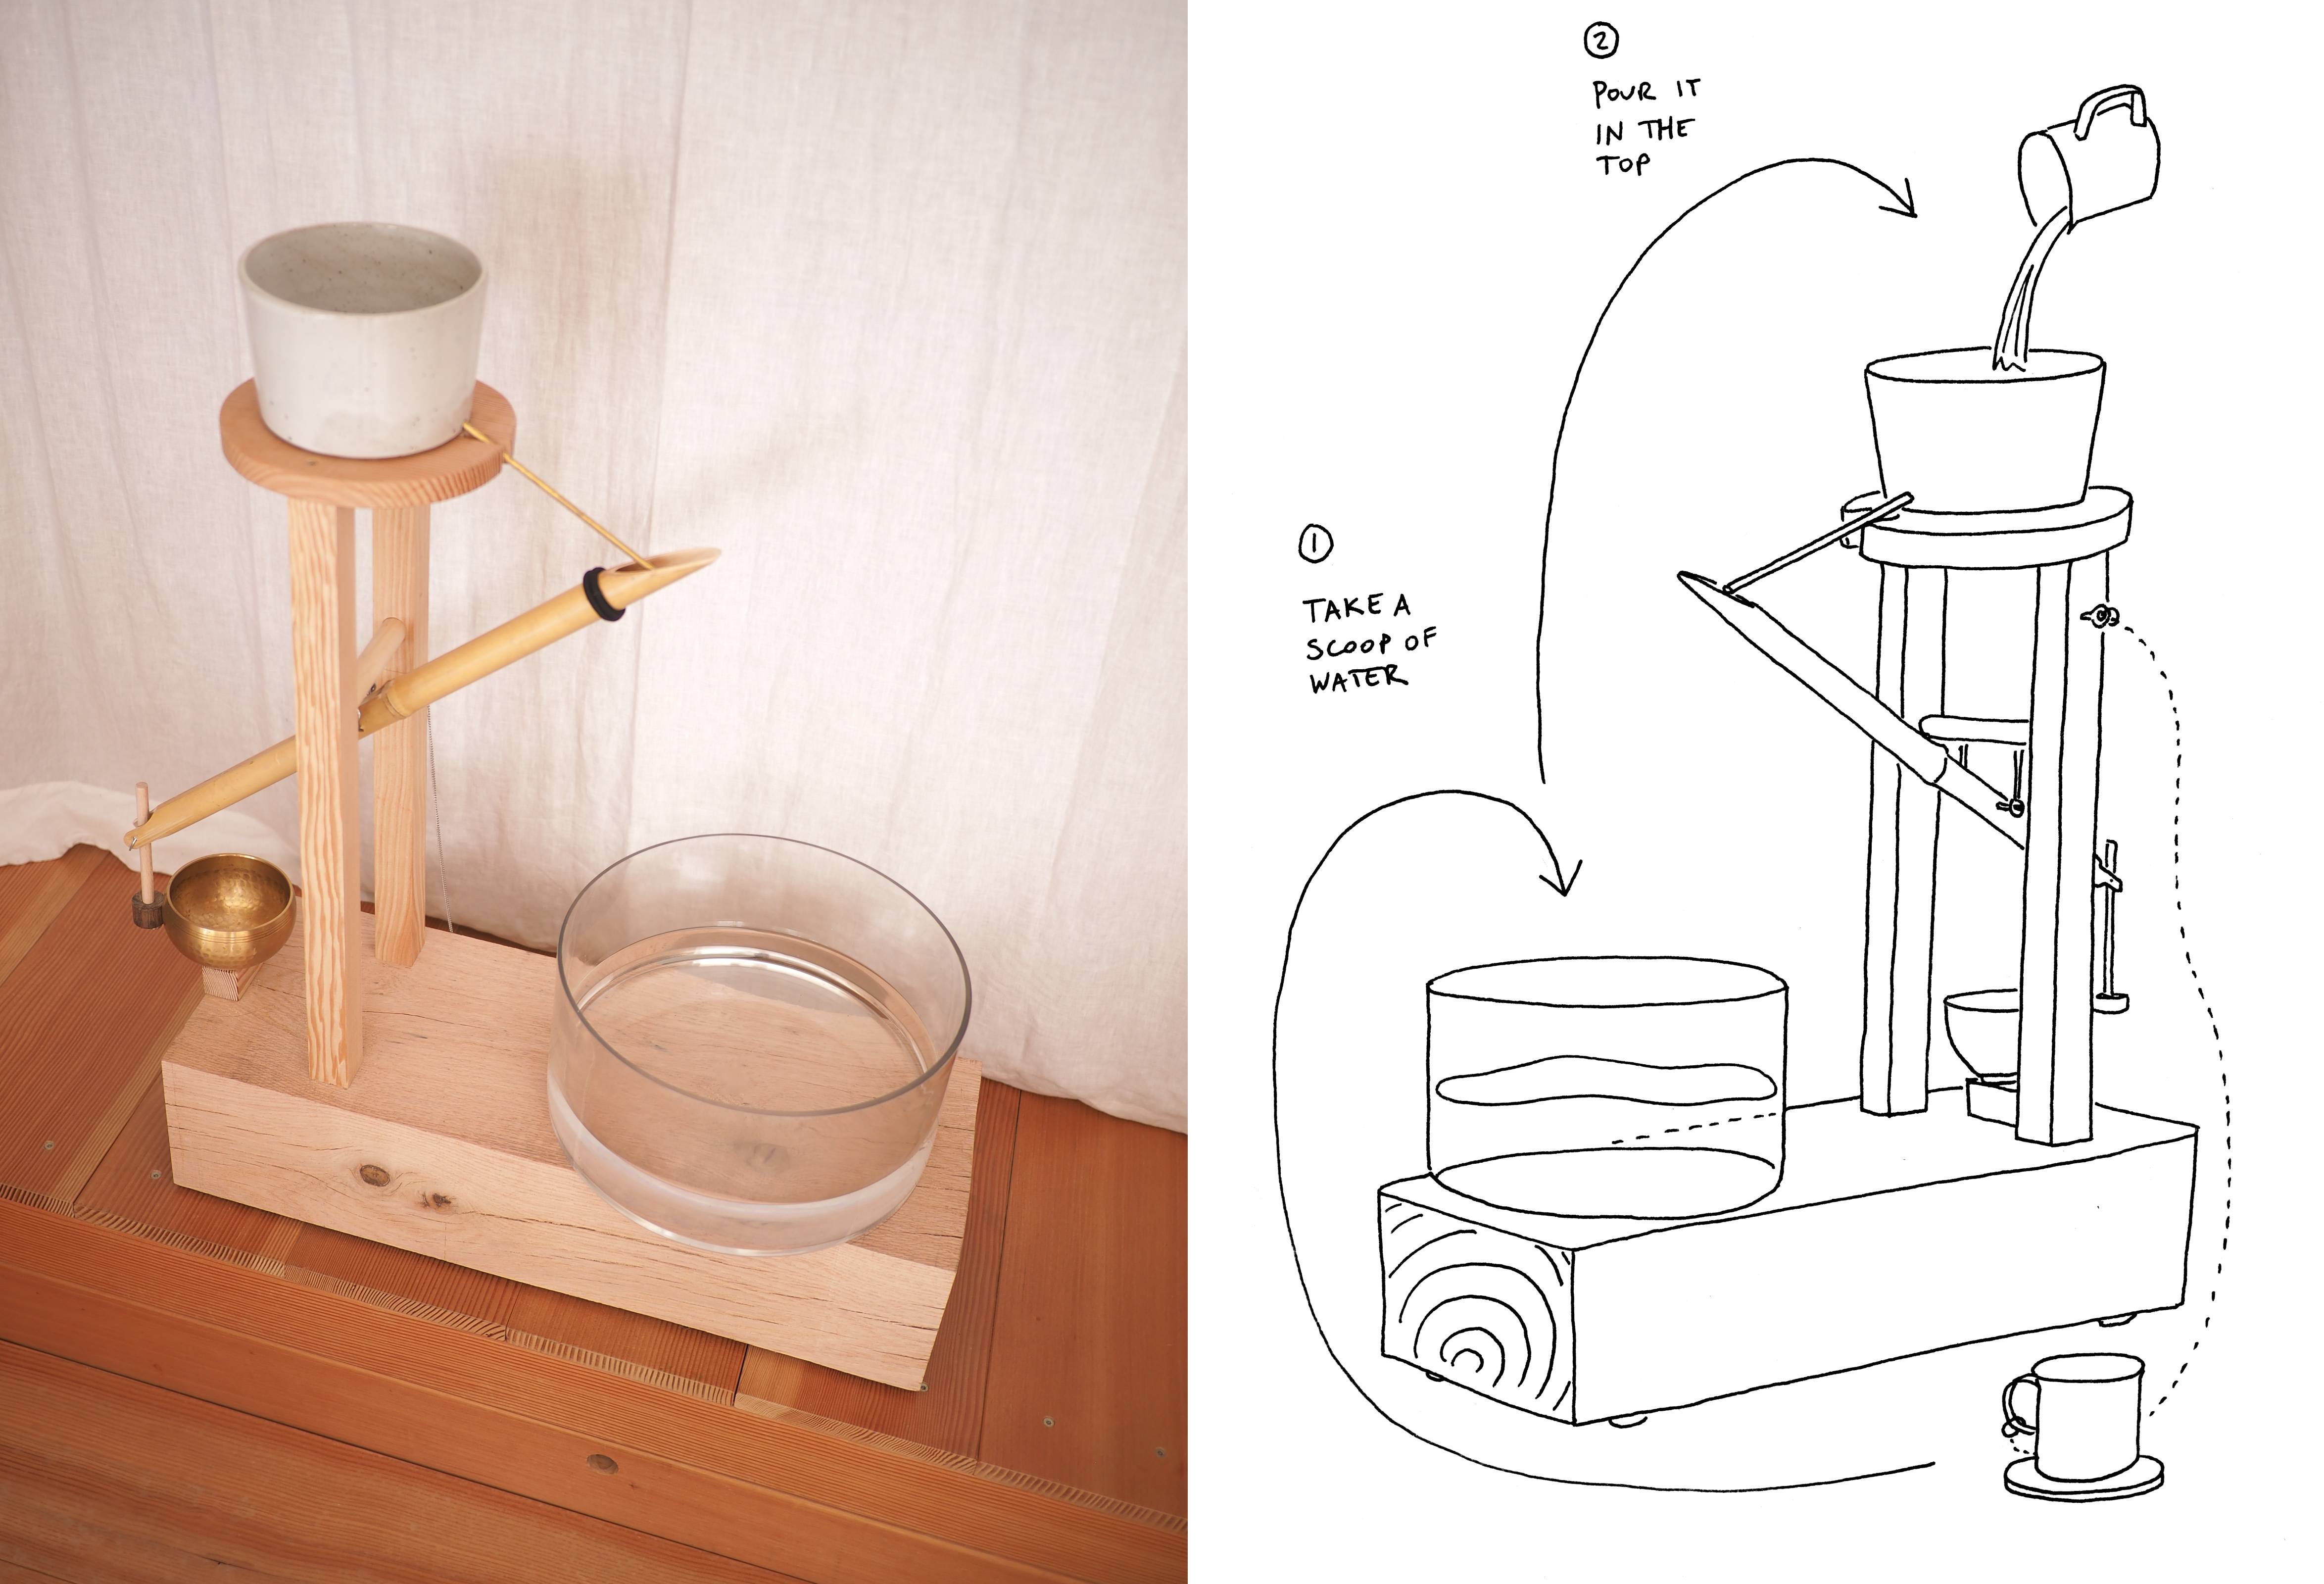 2
POUR IT
IN THE
TOP
1
TAKE A
SCOOP OF
WATER